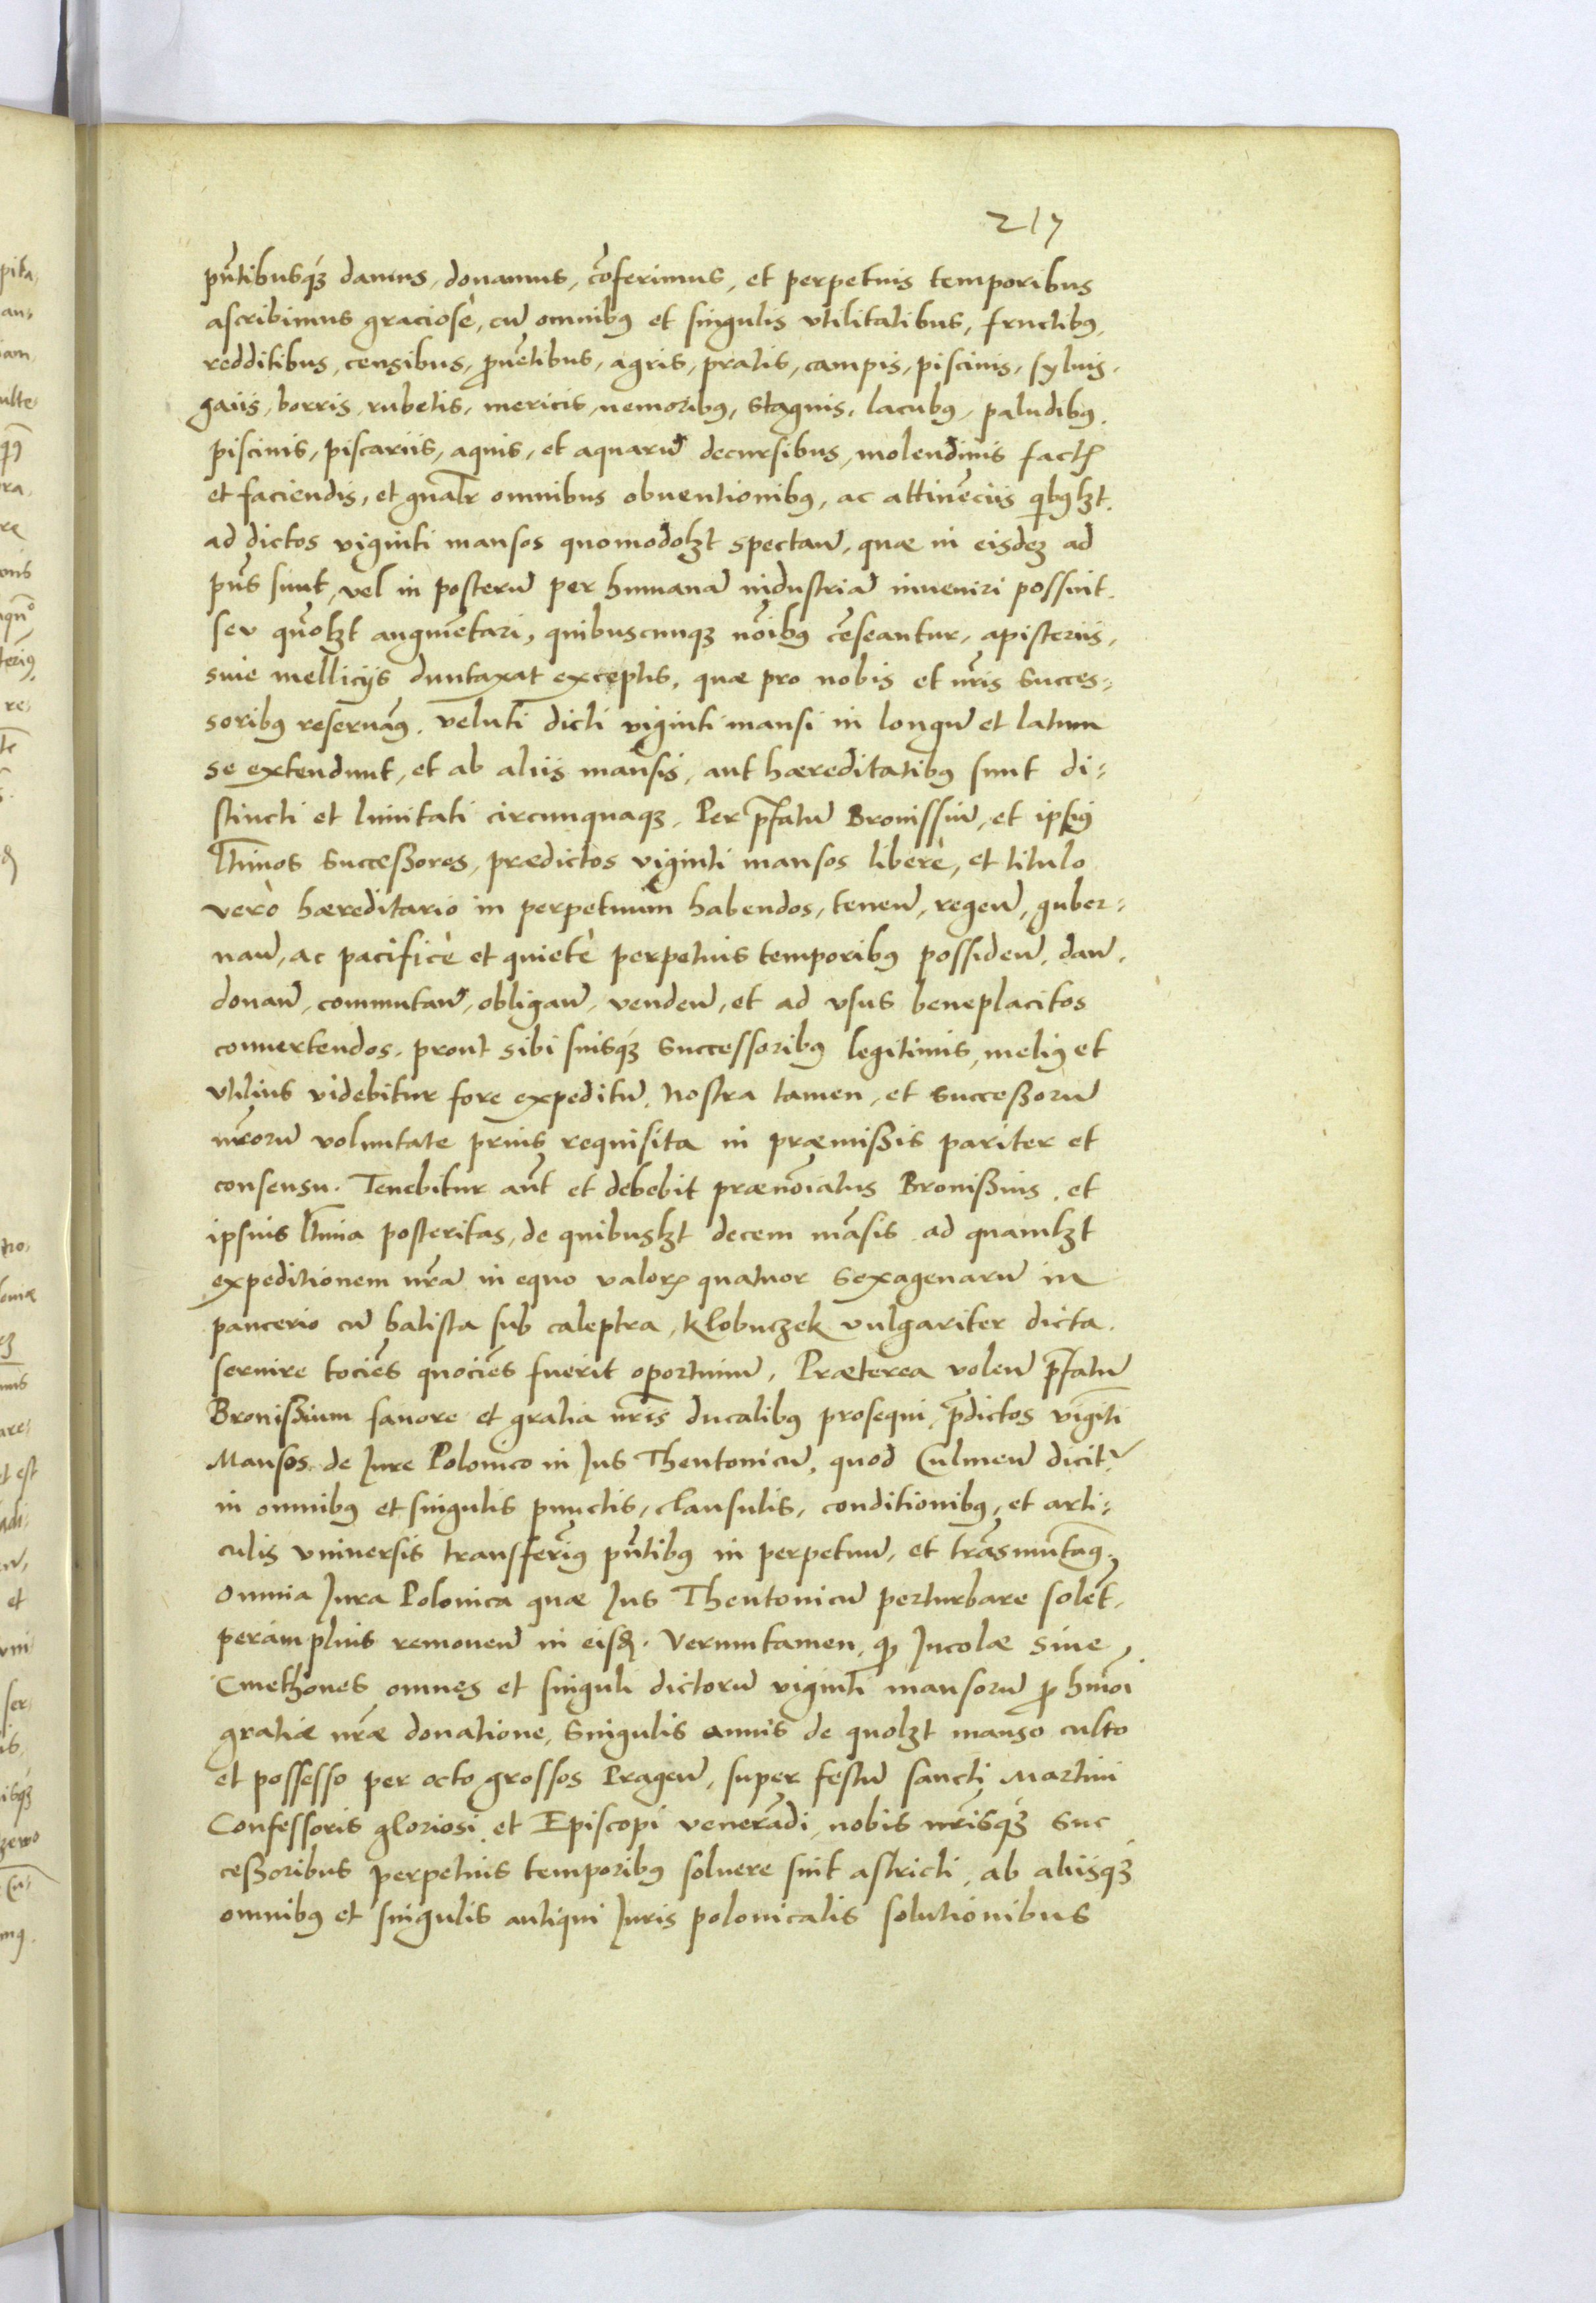 217
pn̄tibusq̃ʒ damus, donamus, cōferimus, et perpetuis temporibus
ascribimus graciosè, cū omnibꝰ et singulis vtilitatibus, fructibꝰ,
redditibus, censibus, ꝓuētibus, agris, pratis, campis, piscinis, syluis,
gaiis, borris, rubetis, mericis, nemoribꝰ, stagnis, lacubꝰ, paludibꝰ,
piscinis, piscariis, aquis, et aquarū decursibus, molendinis factꝭ
et faciendis, et gn̄alr omnibus obuentionibꝰ, ac attinēciis qibꝰlꝫt,
ad dictos viginti mansos quomodolꝫt spectan̄, quæ in eisdeꝫ ad
pn̄s sunt, vel in posterū per humanā industriā inueniri possint,
seu quōlꝫt augmētari, quibuscunqꝫ nōibꝰ cēseantur, apisteriis,
siue melliciis duntaxat exceptis, quæ pro nobis et nr̄is succes⸗
soribꝰ reseruāꝰ. veluti dicti viginti mansi in longū et latum
se extendunt, et ab aliis mansis, aut hæreditatibꝰ sunt di⸗
stincti et limitati circunquaqꝫ. Per p̄fatū Bronissiū, et ipsiꝰ
lt̄imos successores, prædictos viginti mansos liberè, et titulo
verò hæreditario in perpetuum habendos, tenen̄, regen̄, guber⸗
nan̄, ac pacificè et quietè perpetuis temporibꝰ possiden̄, dan̄,
donan̄, commutan̄, obligan̄, venden̄, et ad vsus beneplacitos
conuertendos, prout sibi suisq̃ʒ successoribꝰ legitimis, meliꝰ et
vtilius videbitur fore expeditū. Nostra tamen, et successorū
nr̄orū voluntate prius requisita in præmissis pariter et
consensu. Tenebitur aūt et debebit prænōiatus Bronissius, et
ipsius lt̄ima posteritas, de quibuslꝫt decem māsis ad quamlꝫt
expeditionem nr̄ā in equo valorꝭ quatuor sexagenarū in
pancerio cū balista sub caleptra, Klobuczek vulgariter dicta,
seruire tociēs quociēs fuerit oportunū. Præterea volen̄ p̄fatū
Bronissium fauore et gratia nr̄is ducalibꝰ prosequi, p̄dictos vigīti
Mansos de Jure Polonico in Jus Theutonicū, quod Culmen̄ dicit᷑
in omnibꝰ et singulis punctis, clausulis, conditionibꝰ, et arti⸗
culis vniuersis transferīꝰ pn̄tibꝰ in perpetuū, et trāsmutāꝰ.
Omnia Jura Polonica quæ Jus Theutonicū perturbare solēt,
perámplius remouen̄ in eisd̄. Veruntamen, qd Incolæ siue
Cmethones omnes et singuli dictorū viginti mansorū ꝓ hmōi
gratiæ nr̄æ donatione, singulis annis de quolꝫt manso culto
et possesso per octo grossos Pragen̄, super festū sancti Martini
Confessoris gloriosi et Episcopi venerādi, nobis nr̄isq̃ʒ suc
cessoribus perpetuis temporibꝰ soluere sint astricti, ab aliisq̃ʒ
omnibꝰ et singulis antiqui Juris polonicalis solutionibus